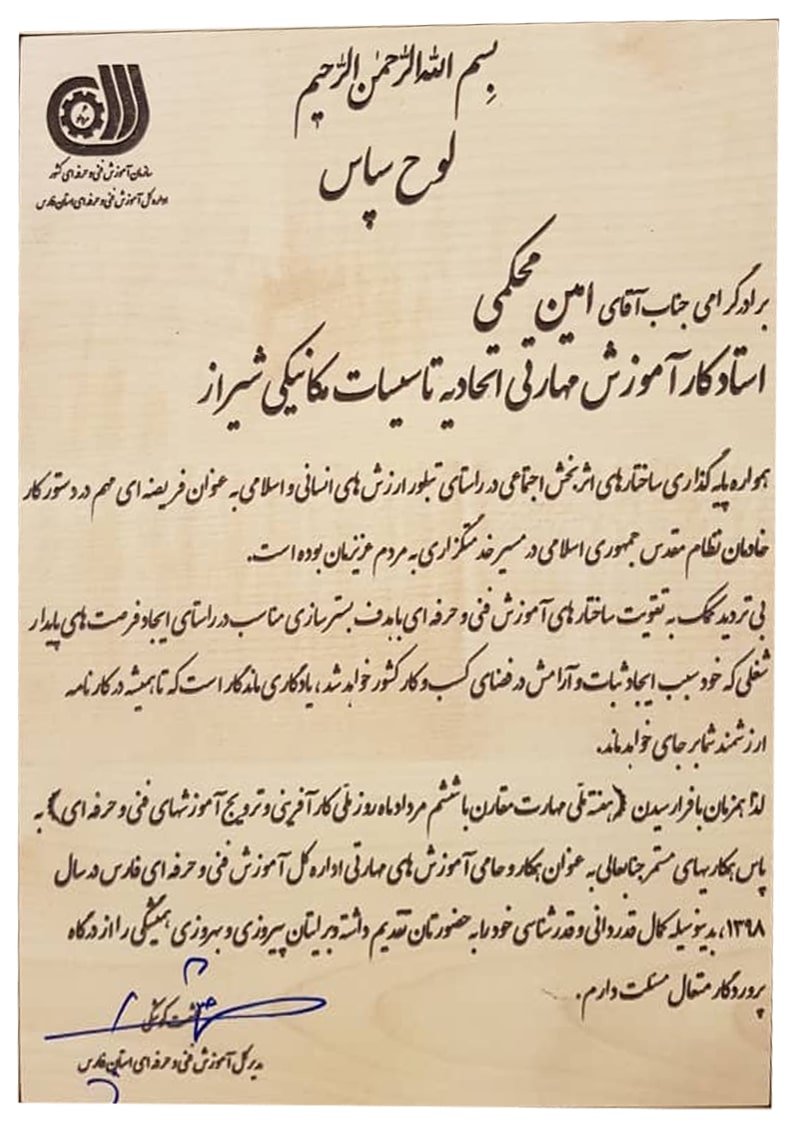 بسم الله الرحمن الرحیم
لوح سپاس
سازمان آموزش فنی و حرفه ای کشور
اداره کل آموزش فنی و حرفه ای استان فارس
برادر گرامی جناب آقای امین محکمی
استاد کار آموزش مهارتی اتحادیه تاسیسات مکانیکی شیراز
همواره پایه گذاری ساختارهای اثربخش اجتماعی در راستای تبلور ارزش های انسانی و اسلامی به عنوان فریضه ای مهم در دستور کار
خادمان نظام مقدس جمهوری اسلامی در مسیر خدمتگزاری به مردم عزیزمان بوده است.
بی تردید کمک به تقویت ساختارهای آموزش فنی و حرفه ای با هدف بسترسازی مناسب در راستای ایجاد فرصت های پایدار
شغلی که خود سبب ایجاد ثبات و آرامش در فضای کسب و کار کشور خواهد شد، یادگاری ماندگار است که تا همیشه در کارنامه
ارزشمند شما بر جای خواهد ماند.
لذا همزمان با فرا رسیدن (هفته ملّی مهارت مقارن با ششم مرداد ماه روز ملّی کارآفرینی و ترویج آموزشهای فنی و حرفه ای) به
پاس همکاریهای مستمر جنابعالی به عنوان همکار و حامی آموزش های مهارتی اداره کل آموزش فنی و حرفه ای فارس در سال
۱۳۹۸، بدینوسیله کمال قدردانی و قدرشناسی خود را به حضورتان تقدیم داشته و برایتان پیروزی و بهروزی همیشگی را از درگاه
پروردگار متعال مسئلت دارم.
مدیر کل آموزش فنی و حرفه ای استان فارس